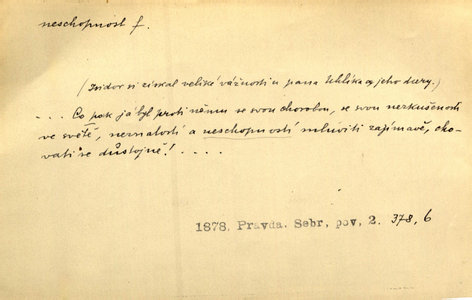 neschopnost f.
(Isidor si získal veliké vážnosti u pana Uhlíka a jeho dcery.)
.... Co pak já byl proti němu se svou chorobou, se svou nezkušeností
ve světě, nemalostí a neschopností mluviti zajímavě, cho-
vati se důstojně! ....
1878. Pravda. Sebr. pov. 2. 378, 6